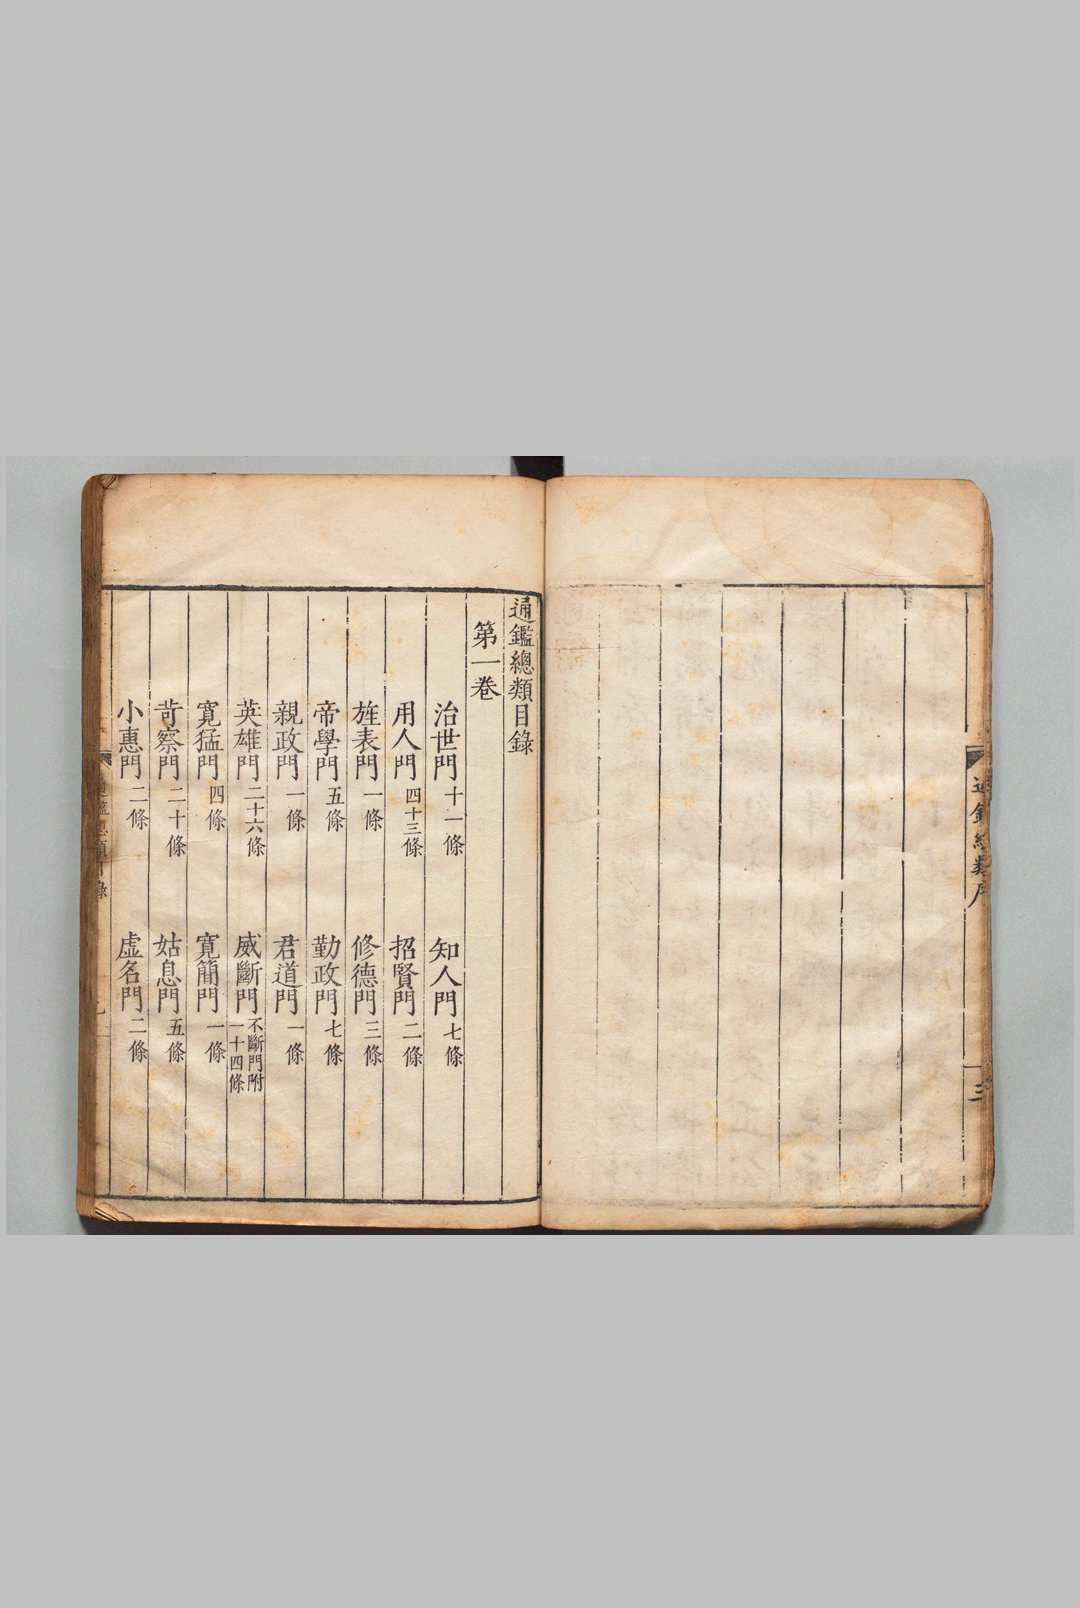 通鑑總類序
三
通鑑總類目錄
第一卷
治世門 十一條 知人門 七條
用人門 四十三條 招賢門 二條
旌表門 一條 修德門 三條
帝學門 五條 勤政門 七條
親政門 一條 君道門 一條
英雄門 二十六條 威斷門 不斷門附 一十四條
寬猛門 四條 寬簡門 一條
苛察門 二十條 姑息門 五條
小惠門 二條 虛名門 二條
通鑑總類目錄